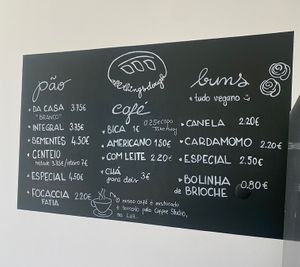 pão
• DA CASA 3.75€
"BRANCO"
• INTEGRAL 3.75€
• SEMENTES 4,50€
• CENTEIO
metade 3.75€/inteiro 7€
• ESPECIAL 4,50€
• FOCACCIA 2.20€
FATIA
café
• BICA 1€ 0.25€ copo
take away
• AMERICANO 1.50€
• COM LEITE 2.20€
• CHÁ
para dois 3€
O nosso café é
torrado pela Coffee Studio,
buns
tudo vegano
• CANELA 2.20€
• CARDAMOMO 2.20€
• ESPECIAL 2.50€
• BOLINHA 0.80€
DE BRIOCHE